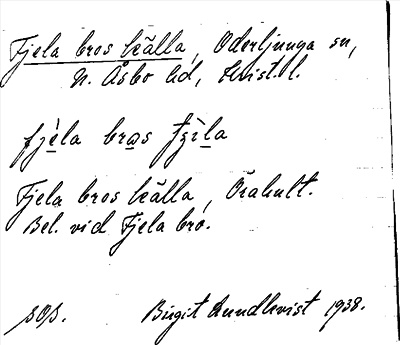 Fjela bros källa, Oderljunga sn,
N. Åsbo hd, Krist. l.
fjèla bros
Fjela bros källa, Örahult.
Bel. vid Fjela bro.
Birgit Lundkvist 1938.